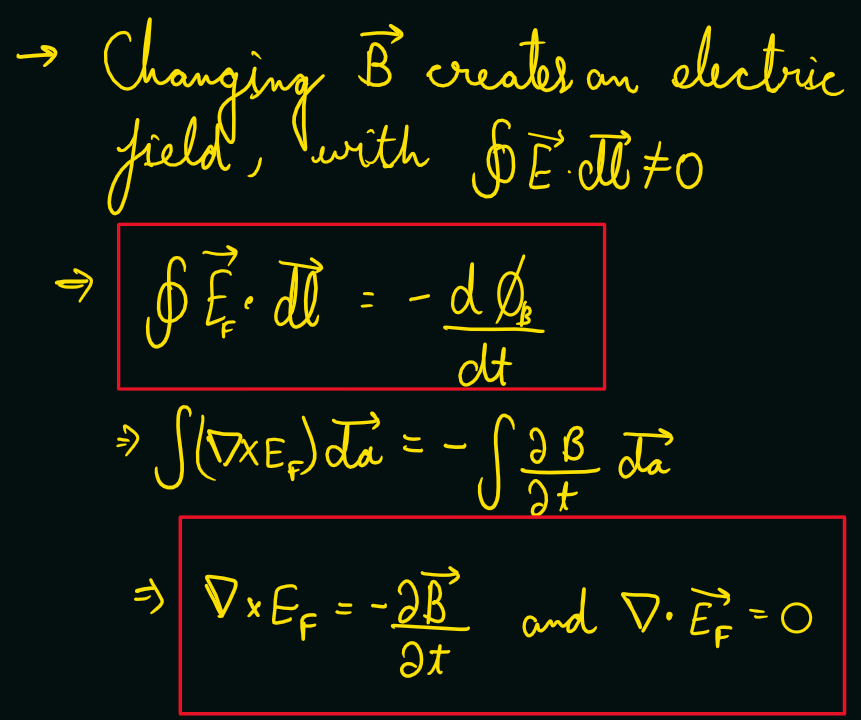 → Changing B⃗ creates an electric
field, with ∮E⃗·dl⃗ ≠ 0
⇒ ∮E⃗_F · dl⃗ = - dϕ_B/dt
⇒ ∫(∇×E_F) da⃗ = - ∫ ∂B/∂t da⃗
⇒ ∇×E_F = - ∂B⃗/∂t and ∇·E⃗_F = 0